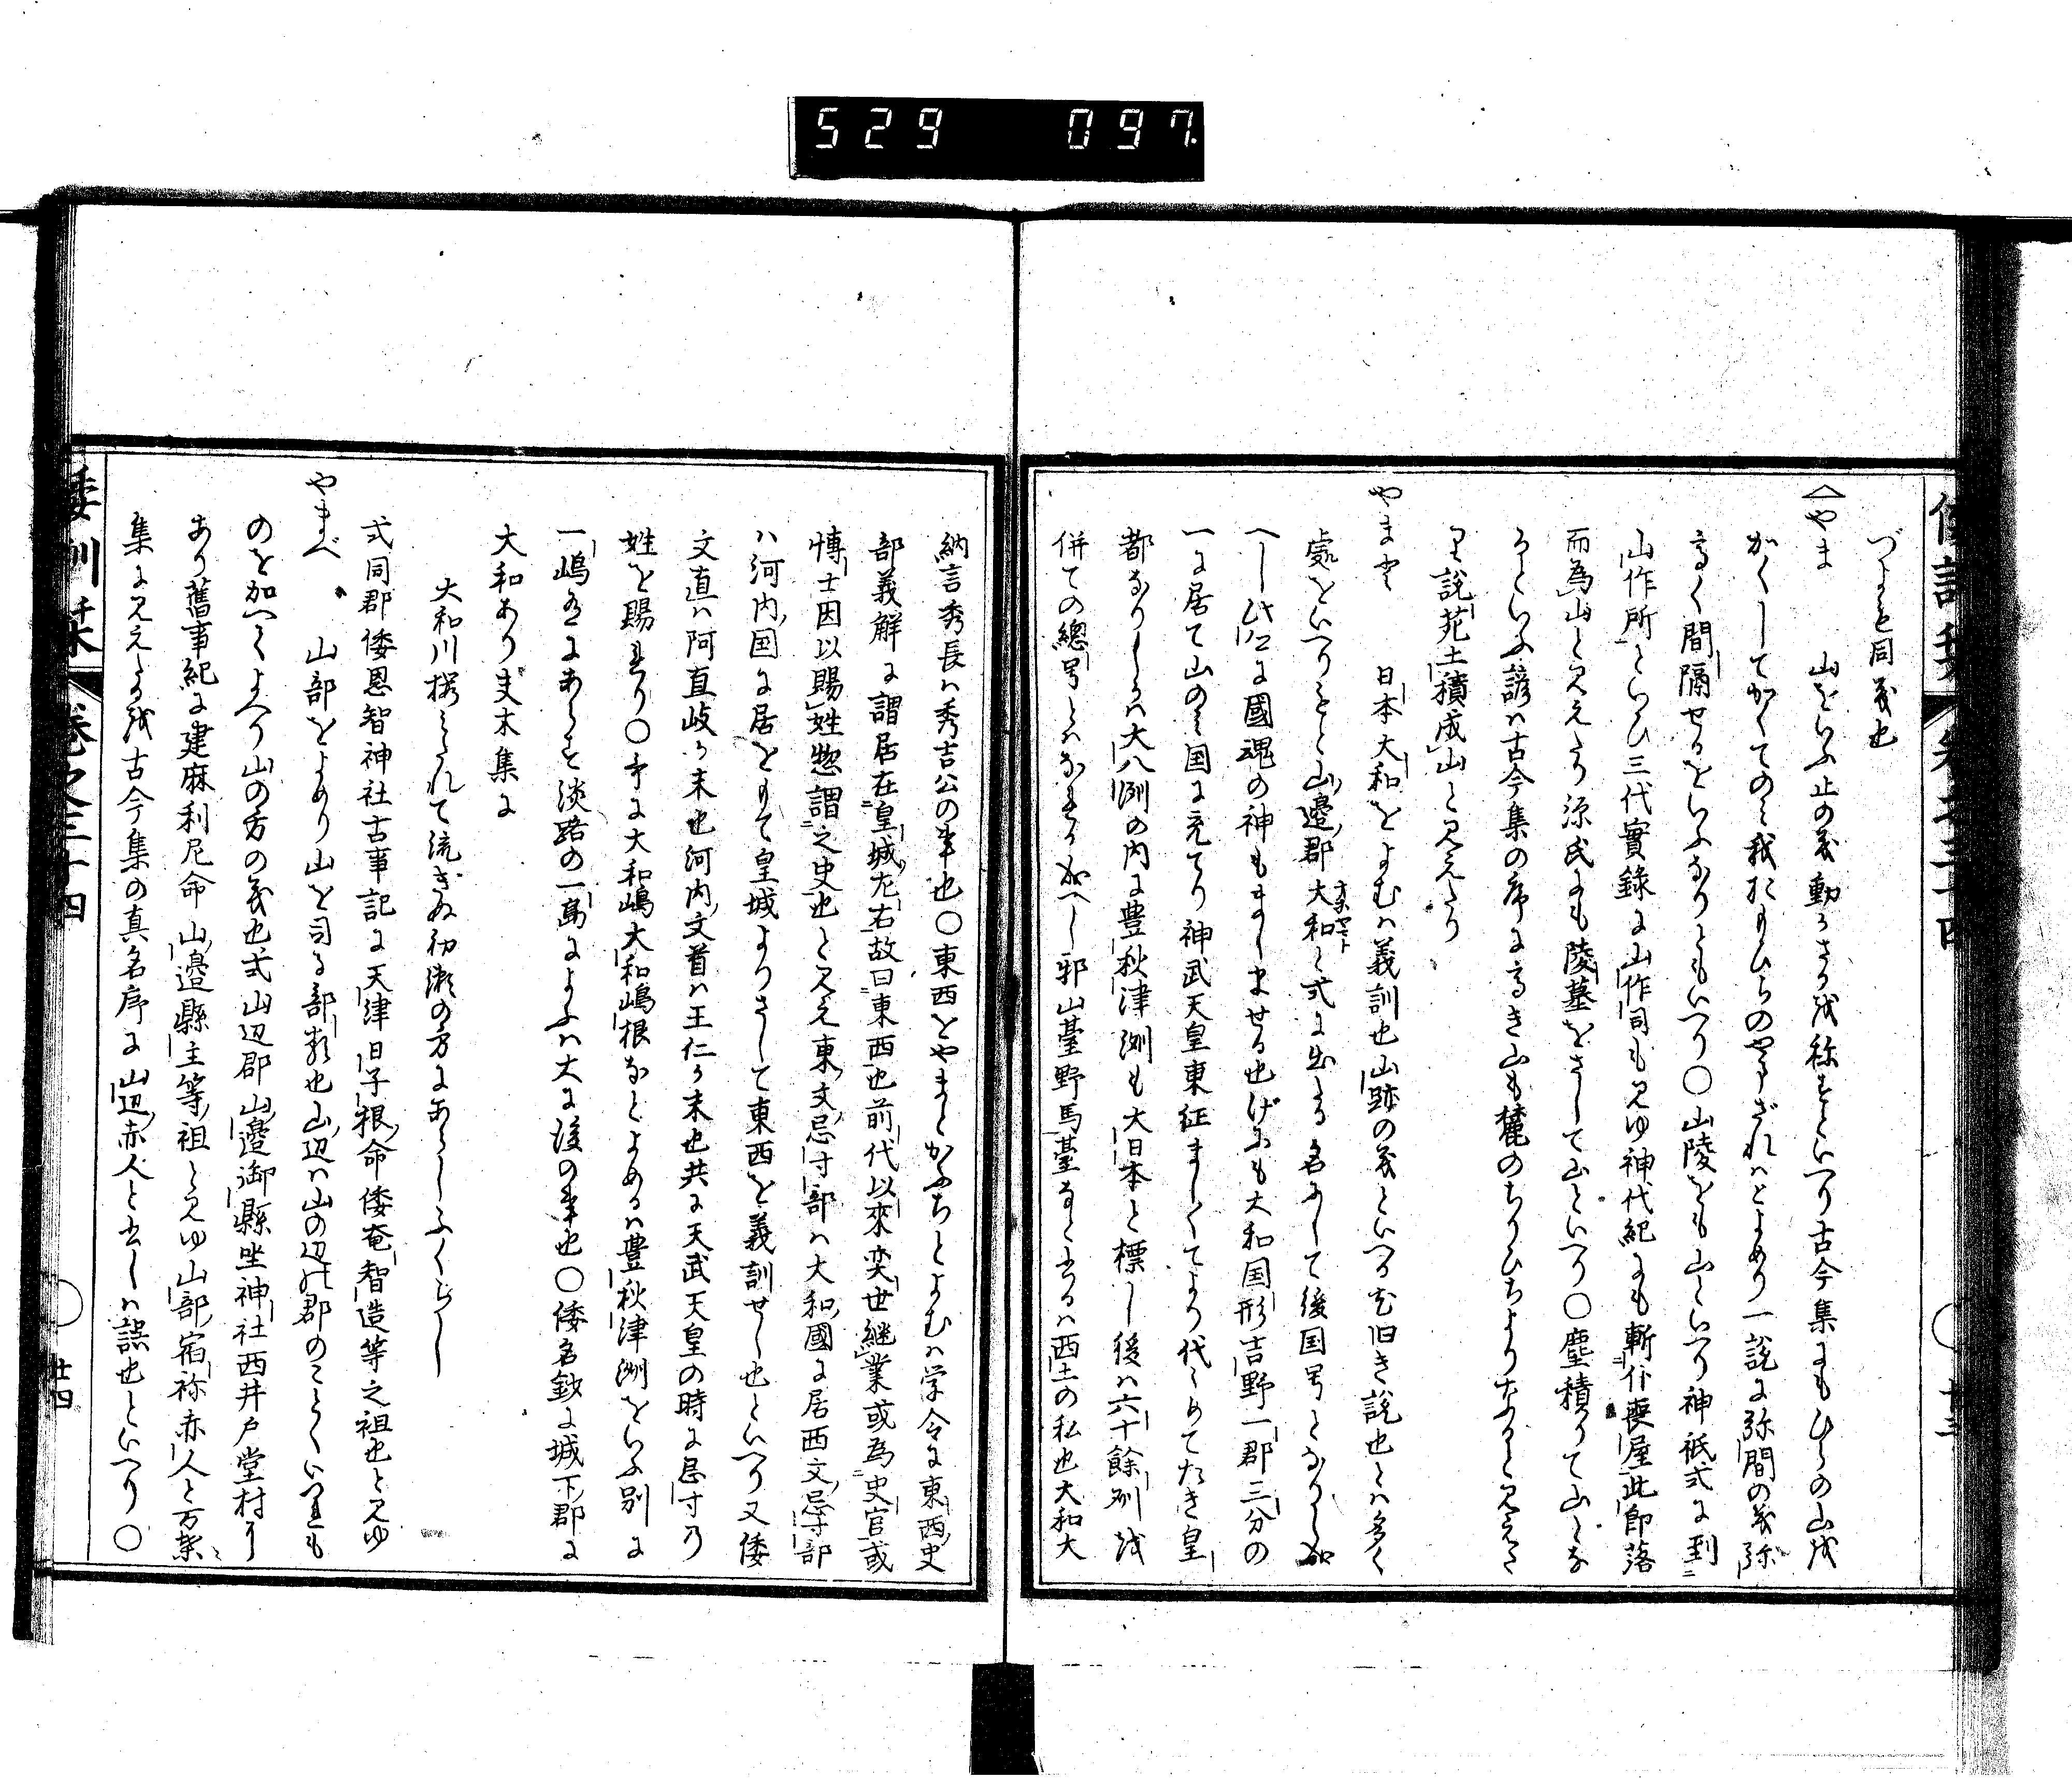 529 097
づまも同義也
やま 山をいふ止の義動かさるを称すといへり古今集にもひらの山を
かくしてかくてのミ我おもひらのやまざれハとよめり一説に弥間の義弥
高く間隔せるをいふなりともいへり〇山陵をも山といへり神祇式に到
山作所といひ三代實録に山作司も見ゆ神代紀にも斬仆喪屋此即落
而為山と見えたり源氏にも陵墓をさして山といへり〇塵積りて山とな
るといふ諺ハ古今集の序に高き山も麓のちりひちよりなると見えた
り説苑土積成山と見えたり
やまと 日本大和をよむハ義訓也山跡の義といへるむ旧き説也とハ多く
處をいへりもと山邉郡大和と式に出る名にして後国号となりし成
へし此に國魂の神もましませる也げにも大和国形吉野一郡三分の
一に居て山のミ国に充てり神武天皇東征ましましてより代々めてたき皇
都なりしかハ大八洌の内に豊秋津洲も大日本と標し後ハ六十餘刕を
併ての總号とハなれる成へし邪山臺野馬臺なと書るハ西土の私也大和大
納言秀長ハ秀吉公の弟也〇東西をやまとかふちとよむハ学令に東西史
部義解に謂居在皇城左右故曰東西也前代以來奕世継業或為史官或
博士因以賜姓惣謂之史也と見え東文忌寸部ハ大和國に居西文忌寸部
ハ河内国に居をもて皇城よりさして東西を義訓せし也といへり又倭
文直ハ阿直岐か末也河内文首ハ王仁か末也共に天武天皇の時に忌寸乃
姓を賜れり〇哥に大和嶋大和嶋根なとよめるハ豊秋津洲をいふ別に
一嶋有にあらす淡路の一島によふハ大に後の事也〇倭名鈔に城下郡に
大和あり夫木集に
大和川桜ミたれて流きぬ初瀬の方にあらしふくらし
式同郡倭恩智神社古事記に天津日子根命倭奄智造等之祖也と見ゆ
やまべ 山部をよめり山を司る部類也山辺ハ山の辺れ郡のことくいつれも
のを加へてよへり山の方の義也式山辺郡山邉御縣坐神社西井戸堂村に
あり舊事紀に建麻利尼命山邉縣主等祖と見ゆ山部宿祢赤人と万葉
集に見えたるを古今集の真名序に山辺赤人と书しハ誤也といへり〇
倭訓栞 巻之三十四 廿四